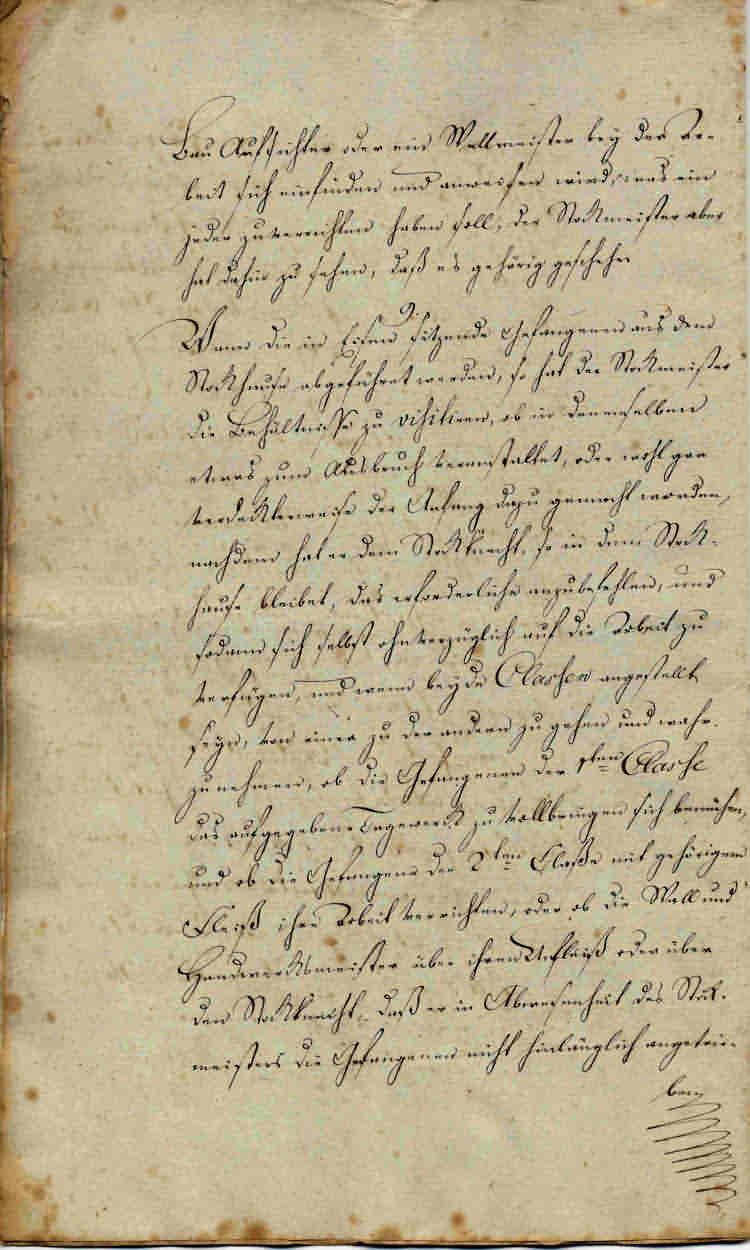 Bau Aufsichter oder ein Wallmeister bey der Ar-
beit sich einfinden und anweisen wird, was ein
jeder zu verrichten haben soll, der Stockmeister aber
hat dahin zu sehen, daß es gehörig geschehe.
9.
Wann die in Eisen sitzende Gefangenen aus dem
Stockhause abgeführet werden, so hat der Stockmeister
die Behältnisse zu visitiren, ob in denenselben
etwas zum Ausbruch veranstaltet, oder wohl gar
verdeckterweise der Anfang dazu gemacht worden,
nachdem hat er dem Stockknecht, so in dem Stock-
hause bleibet, das erforderliche anzubefehlen, und
sodann sich selbst ohnverzüglich auf die Arbeit zu
verfügen, und wenn beyde Classen angestellt
seyn, von einer zu der andern zu gehen und wahr-
zunehmen, ob die Gefangenen der 1ten Classe
das aufgegebene Tagewerck zu vollbringen sich bemühen,
und ob die Gefangene der 2ten Claße mit gehörigem
Fleiß ihre Arbeit verrichten, oder ob die Wall und
Handwercksmeister über ihren Unfleiß oder über
den Stockknecht, daß er in Abwesenheit des Stock-
meisters die Gefangenen nicht hinlänglich angetrie-
ben